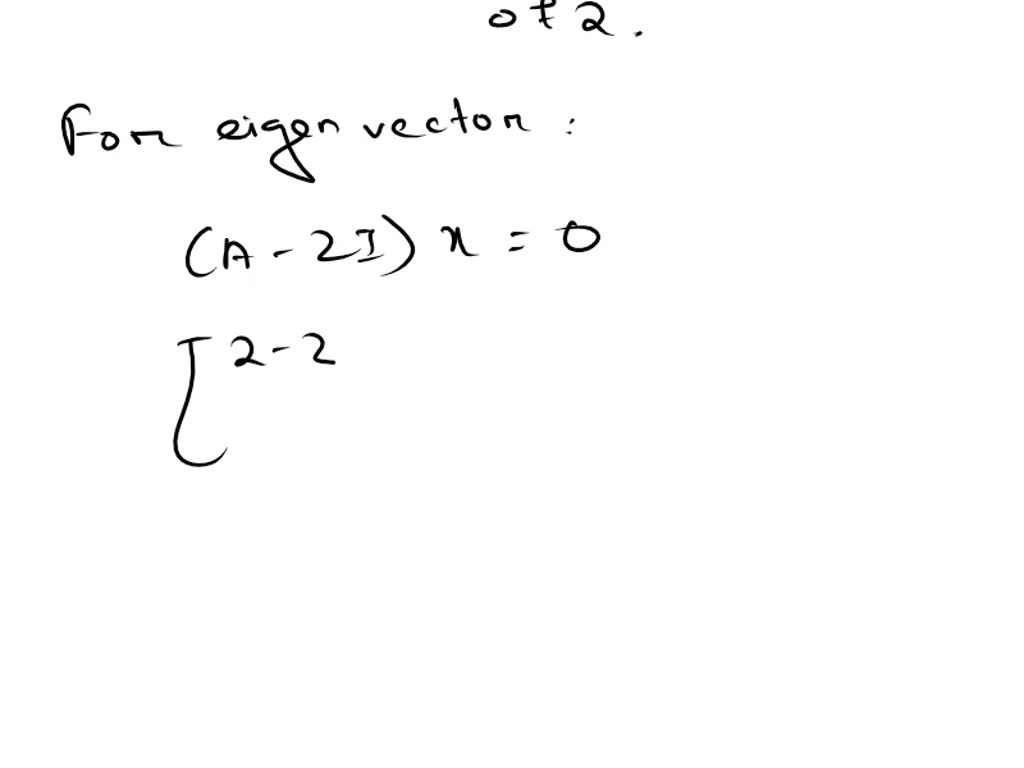 of 2.
For eigen vector :
(A - 2I) x = 0
[ 2 - 2